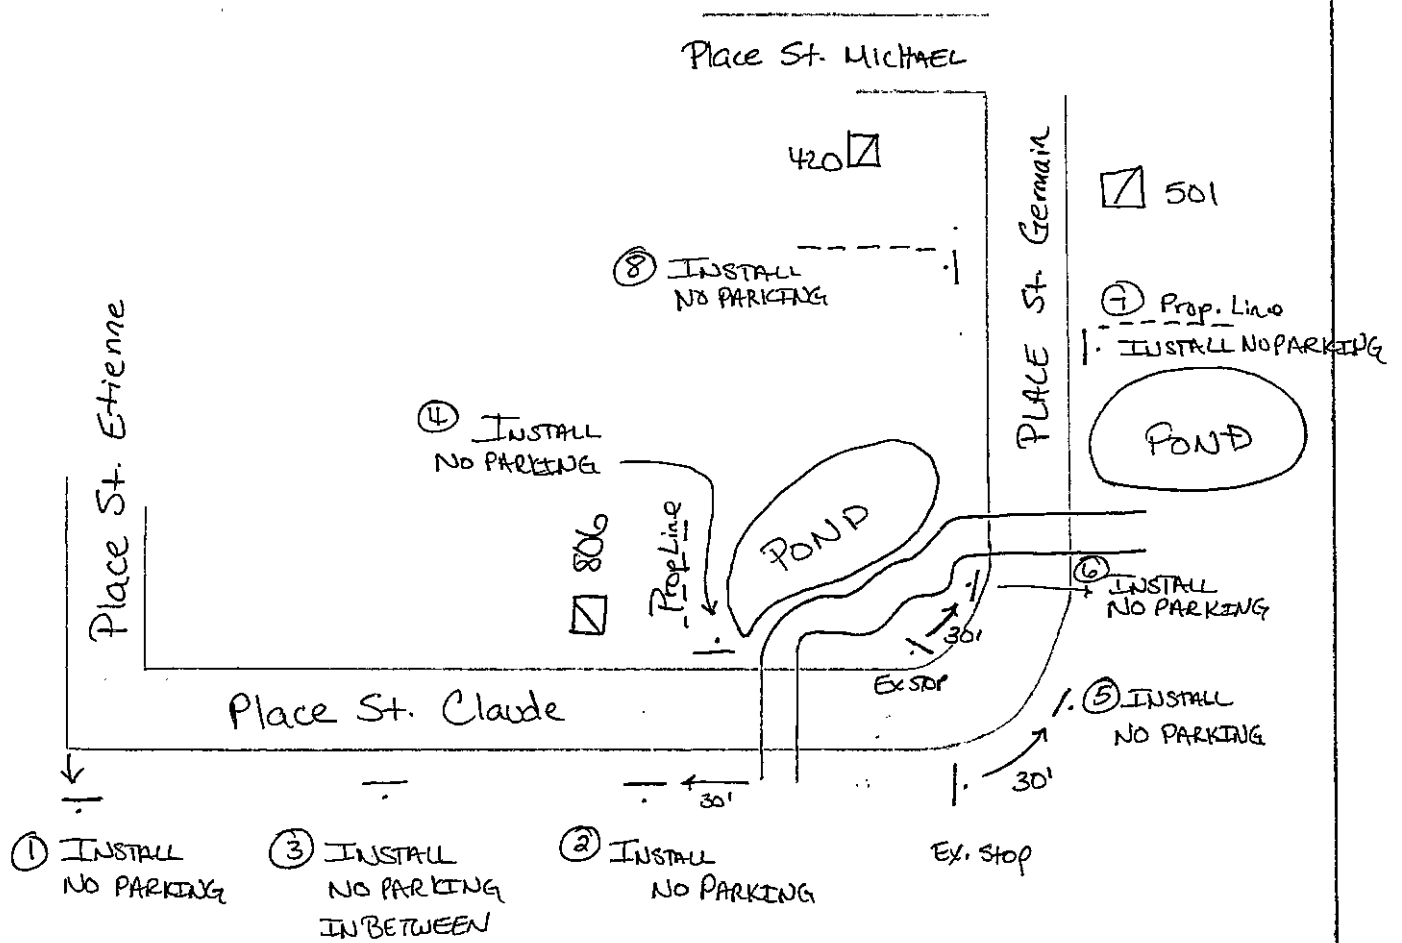 Place St. MICHAEL
420
PLACE St. Germain
501
⑧ INSTALL
NO PARKING
⑦ Prop. Line
INSTALL NO PARKING
POND
Place St. Etienne
④ INSTALL
NO PARKING
806
Prop Line
POND
⑥ INSTALL
NO PARKING
30'
Ex STOP
Place St. Claude
⑤ INSTALL
NO PARKING
30'
30'
Ex. Stop
① INSTALL
NO PARKING
③ INSTALL
NO PARKING
IN BETWEEN
② INSTALL
NO PARKING